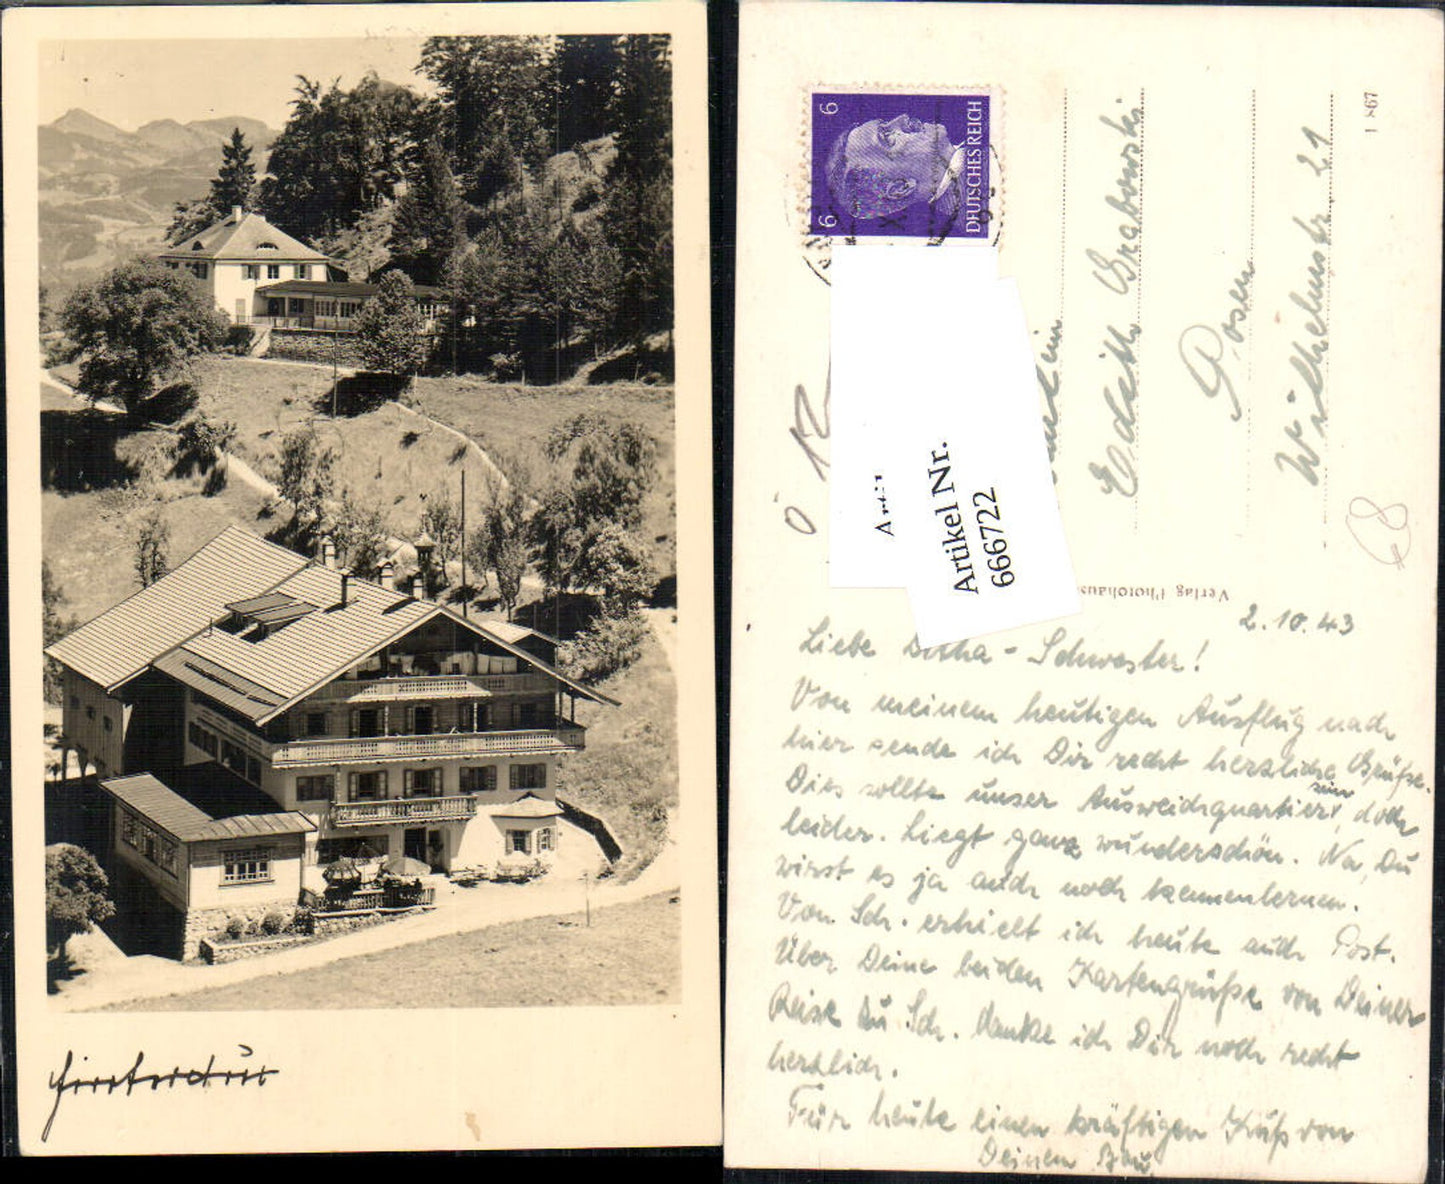 6
6
DEUTSCHES REICH
Artikel Nr.
666722
Edith Grabowski
Posen
Wilhelmstr 21
1 867
Verlag Photohaus
2.10.43
Liebe - Schwester!
Von meinem heutigen Ausflug nach
hier sende ich Dir recht herzliche Grüße.
Dies sollte unser Ausweichquartier sein, doch
leider. Liegt ganz wunderschön. Na, Du
wirst es ja auch noch kennenlernen.
Von Sch. erhielt ich heute auch Post.
Über Deine beiden Kartengrüße von Deiner
Reise zu Sch. danke ich Dir noch recht
herzlich.
Für heute einen kräftigen Kuß von
Deinem